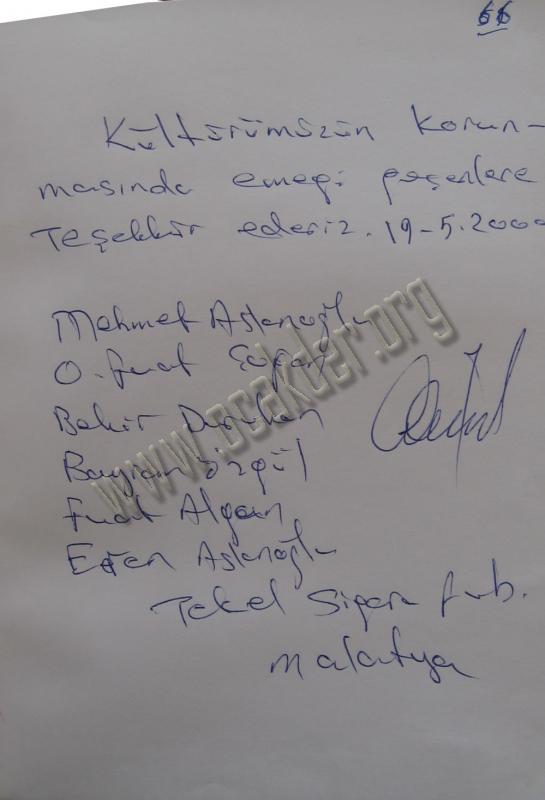 66
Kültürümüzün korun-
masında emeği geçenlere
Teşekkür ederiz. 19-5.2000
Mehmet Aslanoğlu
O. Fuat
Bekir Duruhan
Bayram Özgül
Fuat Algan
Eren Aslanoğlu
Tekel Sigara Fab.
Malatya
www.ocakder.org